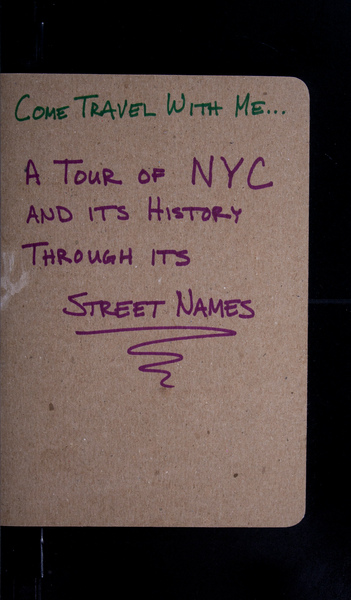 Come Travel With Me...
A Tour of NYC
and its History
Through its
Street Names